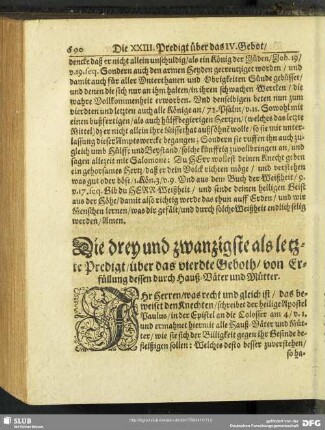 690 Die XXIII. Predigt über das IV. Gebot/
dencke daß er nicht allein unschuldig/als ein König der Jüden/Joh. 19/
v.19. seq. Sondern auch den armen Heyden gecreutziget worden / und
damit auch für aller Unterthanen und Obrigkeiten Sünde gebüsset/
und denen die sich nur an ihm halten/in ihren schwachen Wercken / die
wahre Vollkommenheit erworben. Und denselbigen beten nun zum
vierdten und letzten auch alle Könige an/ 72. Psalm/ v.11. Sowohl mit
einen bußfertigen / als auch hülffbegierigen Hertzen/ (welches das letzte
Mittel/) er nicht allein ihre
lassung dieser Amptswercke begangen; Sondern sie ruffen ihn auch zu-
gleich umb Hülff und Beystand/ solche künfftig zuvollbringen an/ und
sagen allezeit mit Salomone: Du HErr wollest deinen Knecht geben
ein gehorsames Hertz/ daß er dein Volck richten möge / und verstehen
was gut oder böse/ 1. Kön. 3/ v. 9. Und aus dem Buch der Weißheit/ 9.
v. 17. seq. Gib du HERR Weißheit/ und sende deinen heiligen Geist
aus der Höhe/ damit also richtig werde das thun auff Erden/ und wir
Menschen lernen/ was dir gefält/ und durch solche Weißheit endlich selig
werden/ Amen.
Die drey und zwanzigste als letz-
te Predigt/ über das vierdte Geboth/ von Er-
füllung dessen durch Hauß-Väter und Mütter.
Ihr Herren/was recht und gleich ist / das be-
weiset den Knechten /schreibet der heilige Apostel
Paulus/ in der Epistel an die Colosser am 4/ v. 1.
und ermahnet hiermit alle Hauß-Väter und Müt-
ter/ wie sie sich der Billigkeit gegen ihr Gesinde be-
fleißigen sollen: Welches desto besser zuverstehen/
so ha-
SLUB
DFG